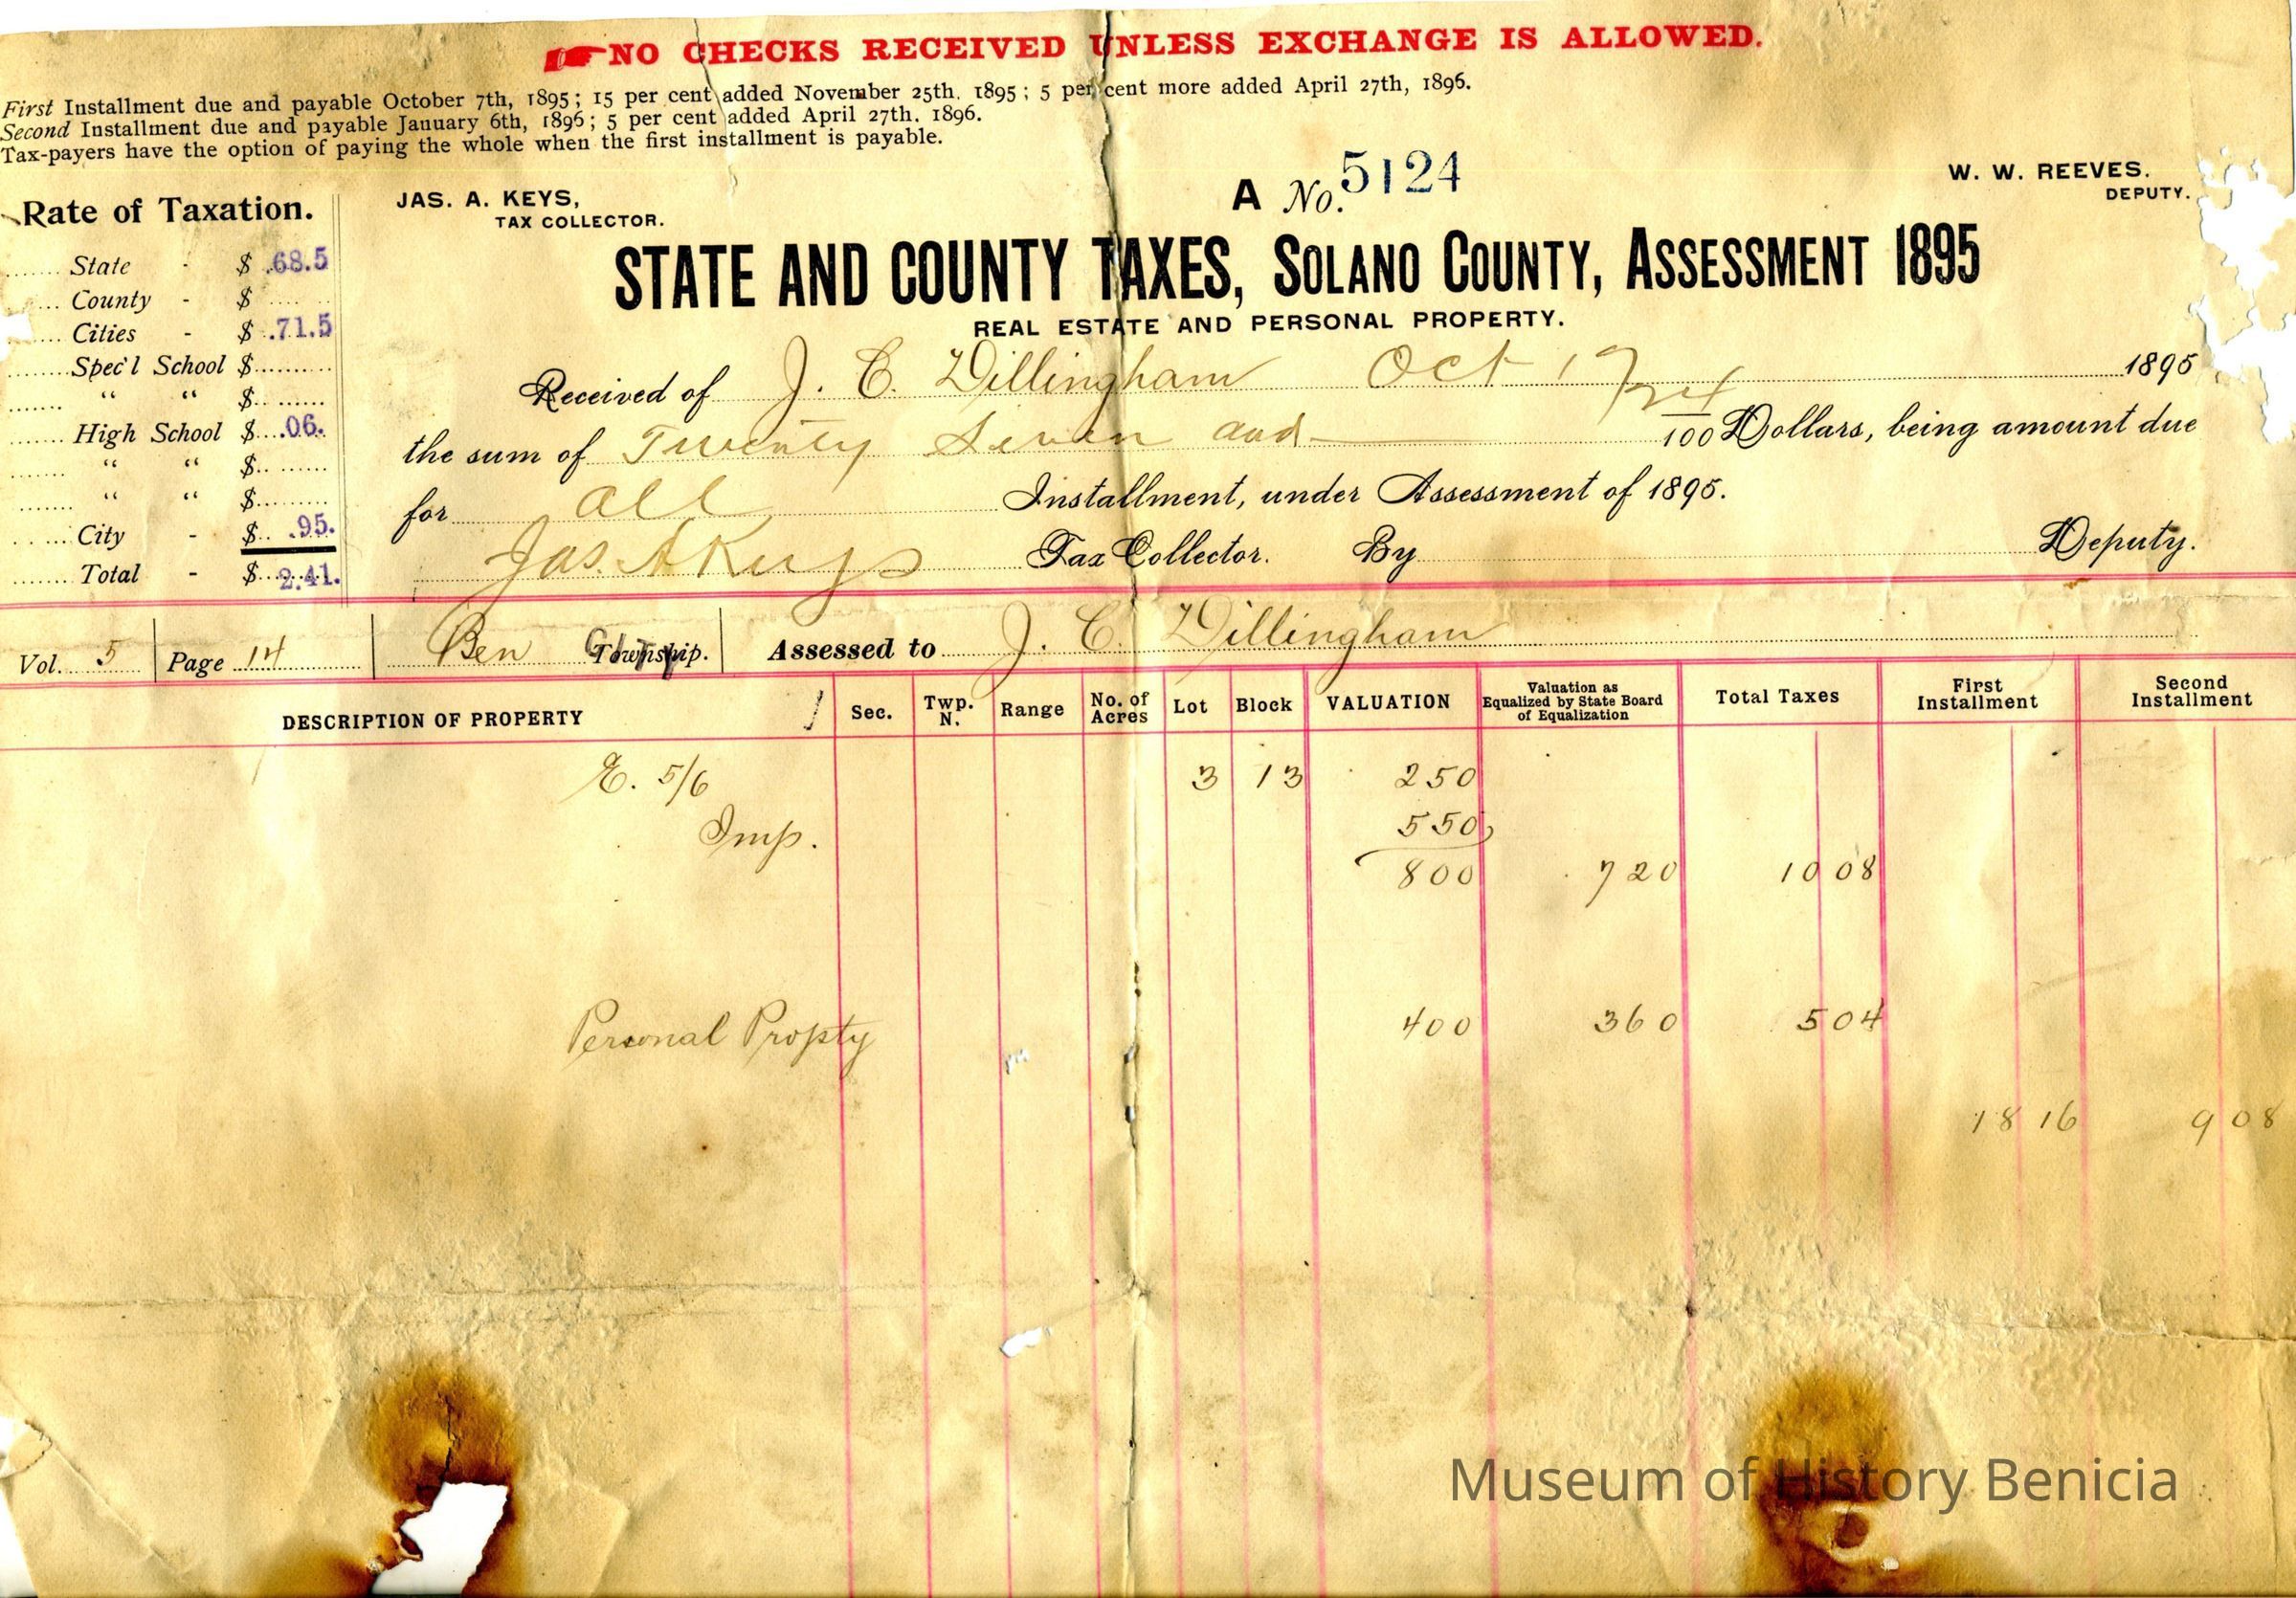 NO CHECKS RECEIVED UNLESS EXCHANGE IS ALLOWED.
First Installment due and payable October 7th, 1895; 15 per cent added November 25th. 1895; 5 per cent more added April 27th, 1896.
Second Installment due and payable January 6th, 1896; 5 per cent added April 27th. 1896.
Tax-payers have the option of paying the whole when the first installment is payable.
A No. 5124
W. W. REEVES.
DEPUTY.
JAS. A. KEYS,
TAX COLLECTOR.
Rate of Taxation.
State - $ .68.5
County - $
Cities - $ .71.5
Spec'l School $
" " $
High School $ .06.
" " $
" " $
City - $ .95.
Total - $ 2.41.
STATE AND COUNTY TAXES, SOLANO COUNTY, ASSESSMENT 1895
REAL ESTATE AND PERSONAL PROPERTY.
Received of J. C. Dillingham Oct 17 1895
the sum of Twenty Seven and 24/100 Dollars, being amount due
for all Installment, under Assessment of 1895.
Jas. A Keys Tax Collector. By Deputy.
Vol. 5 Page 14 Ben Township. Assessed to J. C. Dillingham
DESCRIPTION OF PROPERTY Sec. Twp. N. Range No. of Acres Lot Block VALUATION Valuation as Equalized by State Board of Equalization Total Taxes First Installment Second Installment
E. 5/6 3 13 250
Imp. 550
800 720 10 08
Personal Propty 400 360 5 04
18 16 9 08
Museum of History Benicia